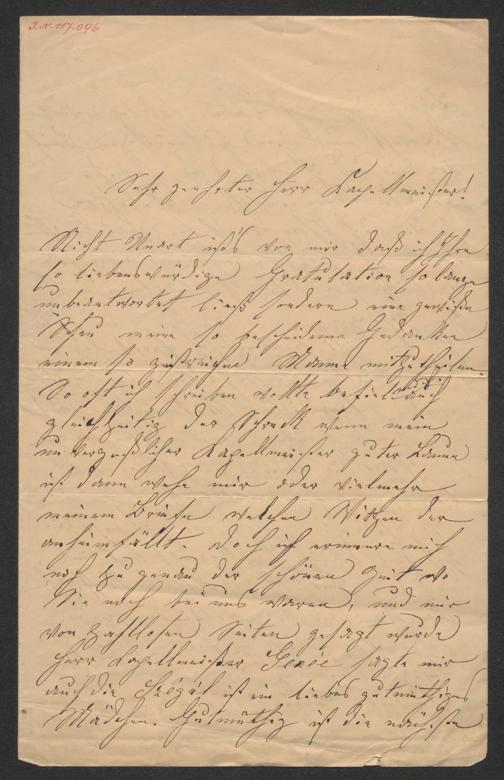 I.N. 117.096
Sehr geehrter Herr Kapellmeister!
Nicht Unart ist's von mir daß ich Ihre
so liebenswürdige Gratulation so lange
unbeantwortet ließ sondern eine gewiße
Scheu meine so bescheidenen Gedanken
einem so geistreichen Manne mitzutheilen.
So oft ich schreiben wollte befiel mich auch
gleichzeitig der Schreck wenn mein
unvergeßlicher Kapellmeister guter Laune
ist dann wehe mir oder vielmehr
meinem Briefe welchen Witzen der
anheimfällt. Doch ich erinnere mich
noch zu genau der schönen Zeit wo
Sie noch bei uns waren, und mir
von zahllosen Seiten gesagt wurde
Herr Kapellmeister Genée sagte mir
auch die ist ein liebes gutmüthiges
Mädchen. Gutmüthig ist die nächste